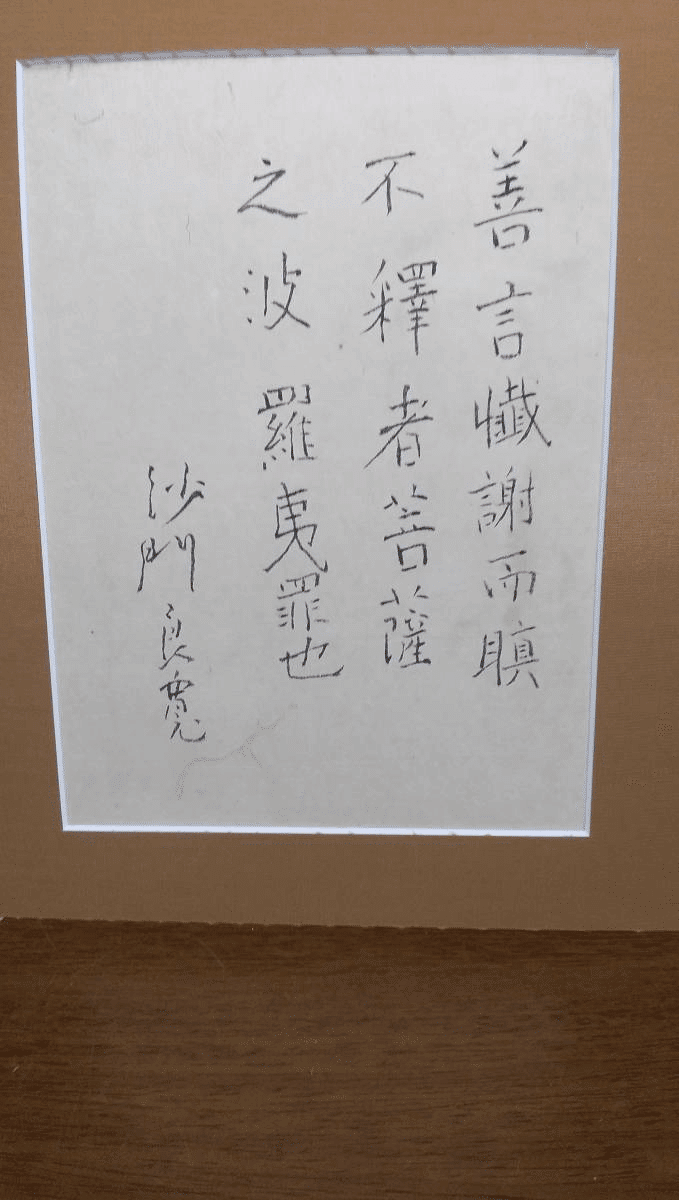 善言懴謝而瞋
不釋者菩薩
之波羅夷罪也
沙門良寛